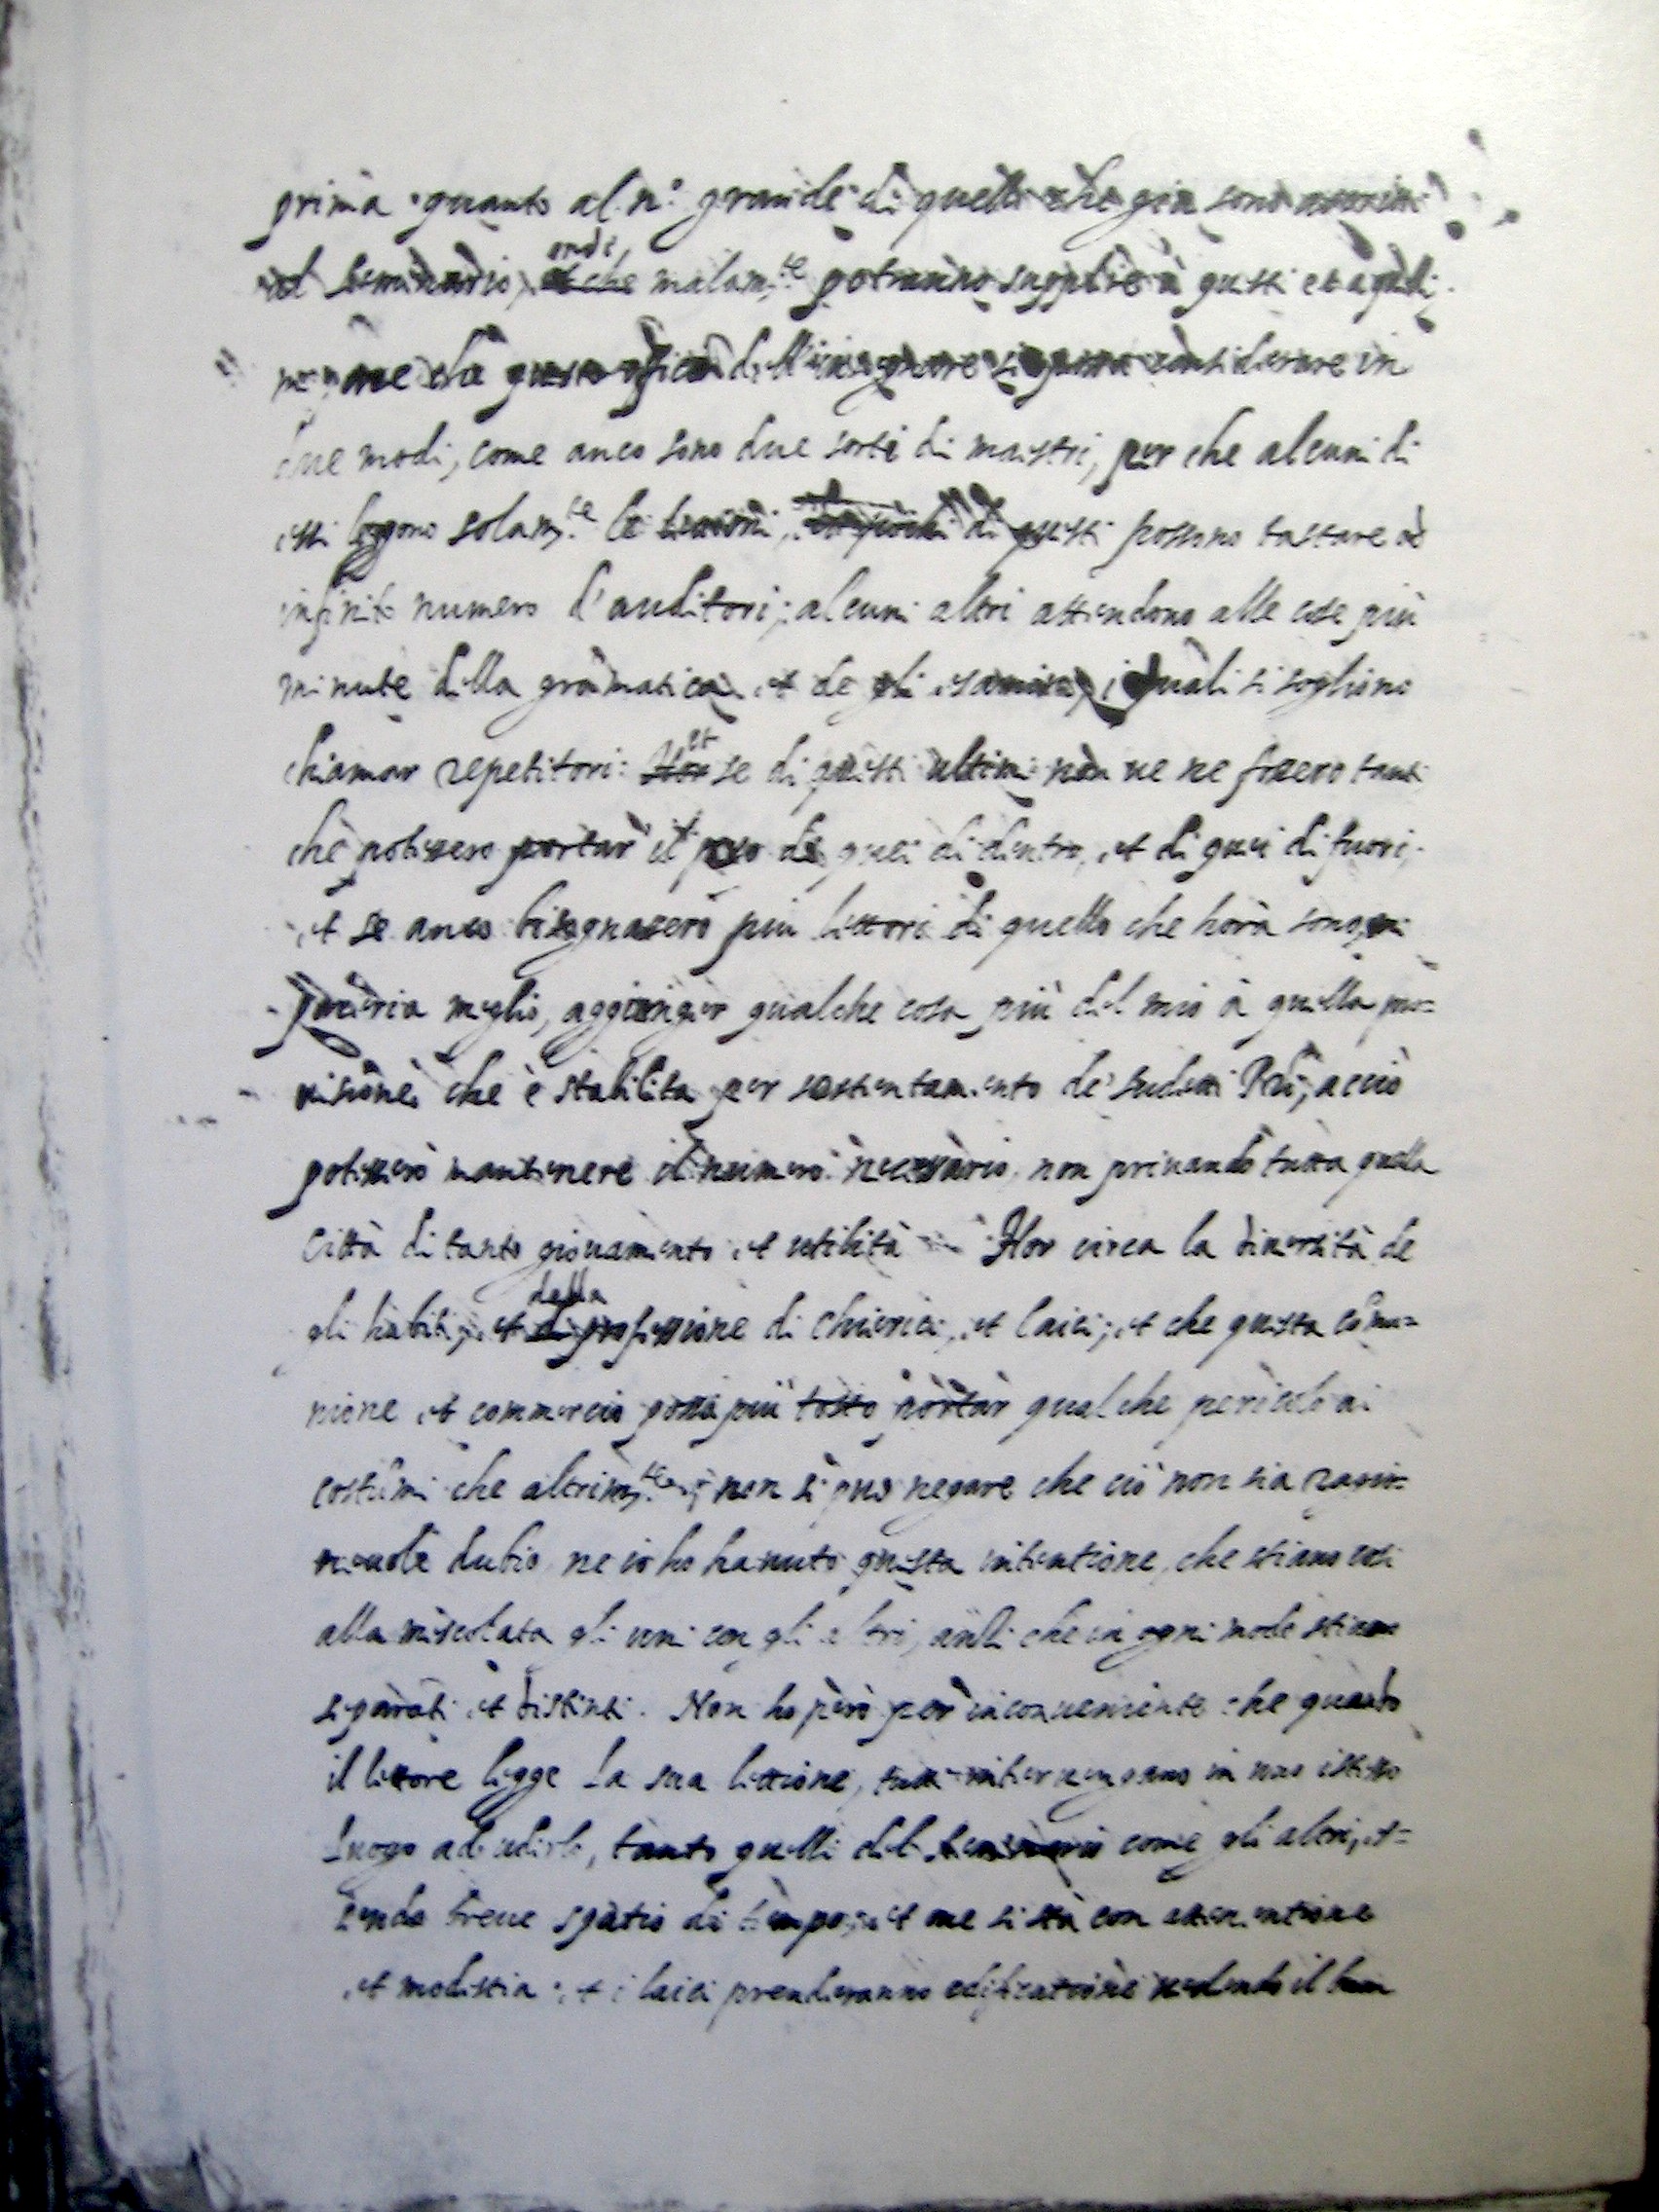 prima quanto al n.º grande di quelli che gia sono
nel Seminario, onde, et che malam.te potranno supplire à questi et a quelli;
me pare che questo officio dell'insegnare si possa considerare in
due modi, come anco sono due sorti di maestri, per che alcuni di
essi leggono solam.te le lettioni, et pochi di questi possono bastare ad
infinito numero d'auditori; alcuni altri attendono alle cose più
minute della gramatica, et de gli essamini, i quali si sogliono
chiamar repetitori: Hor et se di questi ultimi non ve ne fossero tanti
che potessero portar il peso de quei di dentro, et di quei di fuori,
et se anco bisognassero piu lettori di quello che hora sono, mi
piaceria meglio, aggiunger qualche cosa più del mio à quella pro=
visione, che è stabilita per sostentamento de' sudetti Pri, acciò
potessero mantenere il numero necessario, non privando tutta quella
Città di tanto giovamento et utilità Hor circa la diversità de
gli habiti, et di della professione di chierici, et laici; et che questa comu=
nione et commercio possa più tosto portar qualche pericolo ai
costumi che altrim.te; non si può negare che ciò non sia ragio=
nevole dubio, ne io ho havuto questa intentione, che stiano così
alla miscolata gli uni con gli altri, anzi che in ogni modo stiano
separati et distinti. Non ho però per inconveniente che quando
il lettore legge la sua lettione, tutti intervengano in uno istesso
luogo ad udirla, tanto quelli del Seminario come gli altri, es=
sendo breve spatio di tempo, et ove si stà con attentione
et modestia: et i laici prenderanno edificatione vedendo il buon